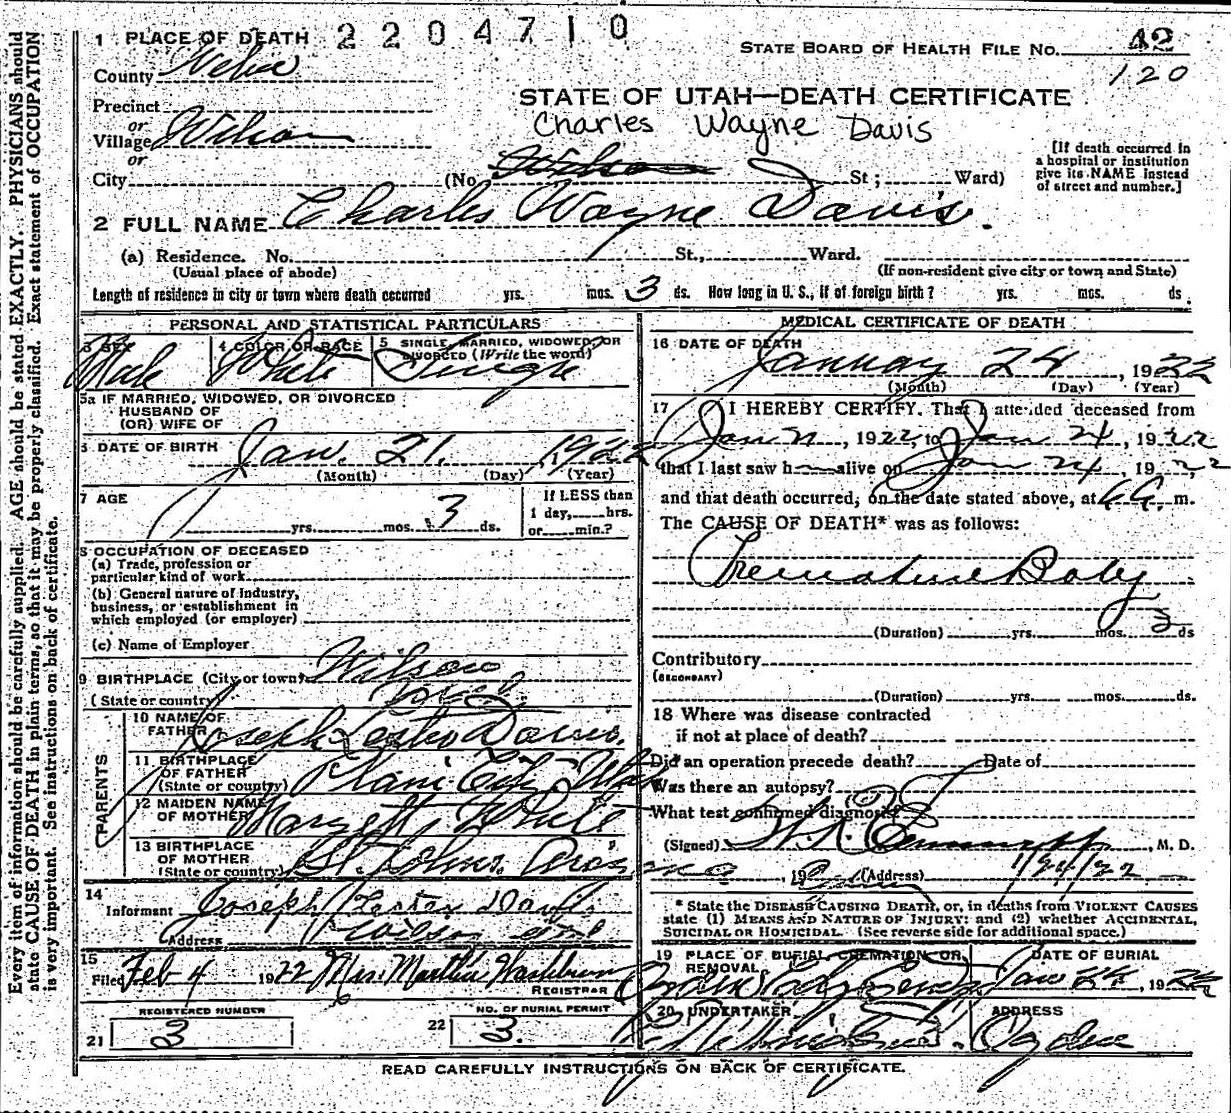 Every item of information should be carefully supplied. AGE should be stated EXACTLY. PHYSICIANS should
state CAUSE OF DEATH in plain terms, so that it may be properly classified. Exact statement of OCCUPATION
is very important. See instructions on back of certificate.
2204710
1 PLACE OF DEATH
STATE BOARD OF HEALTH FILE NO. 42
120
County
STATE OF UTAH—DEATH CERTIFICATE
Charles Wayne Davis
Precinct
or
Village Wilson
or
City (No. Wilson St; Ward)
[If death occurred in
a hospital or institution
give its NAME instead
of street and number.]
2 FULL NAME Charles Wayne Davis.
(a) Residence. No. St., Ward.
(Usual place of abode) (If non-resident give city or town and State)
Length of residence in city or town where death occurred yrs. mos. 3 ds. How long in U. S., if of foreign birth? yrs. mos. ds.
PERSONAL AND STATISTICAL PARTICULARS
3 SEX Male
4 COLOR OR RACE White
5 SINGLE, MARRIED, WIDOWED, OR
DIVORCED (Write the word) Single
5a IF MARRIED, WIDOWED, OR DIVORCED
HUSBAND OF
(OR) WIFE OF
6 DATE OF BIRTH Jan. 21, 1922
(Month) (Day) (Year)
7 AGE yrs. mos. 3 ds.
If LESS than
1 day, hrs.
or min.?
8 OCCUPATION OF DECEASED
(a) Trade, profession or
particular kind of work
(b) General nature of Industry,
business, or establishment in
which employed (or employer)
(c) Name of Employer
9 BIRTHPLACE (City or town) Wilson
(State or country)
PARENTS
10 NAME OF
FATHER Joseph Lester Davis.
11 BIRTHPLACE
OF FATHER
(State or country) Plain City Utah
12 MAIDEN NAME
OF MOTHER White
13 BIRTHPLACE
OF MOTHER
(State or country) St. Johns. Arizona
14
Informant Joseph Lester Davis
Address Wilson
15
Filed Feb 4 1922 Mrs. Martha Washburn
REGISTRAR
REGISTERED NUMBER
21 3
NO. OF BURIAL PERMIT
22 3.
MEDICAL CERTIFICATE OF DEATH
16 DATE OF DEATH January 24, 1922
(Month) (Day) (Year)
17 I HEREBY CERTIFY. That I attended deceased from
Jan 21, 1922, to Jan 24, 1922
that I last saw h alive on Jan 24, 1922
and that death occurred, on the date stated above, at 6 A. m.
The CAUSE OF DEATH* was as follows:
Premature Baby
(Duration) yrs. mos. 3 ds
Contributory
(SECONDARY)
(Duration) yrs. mos. ds.
18 Where was disease contracted
if not at place of death?
Did an operation precede death? Date of
Was there an autopsy?
What test confirmed diagnosis?
(Signed) , M. D.
, 19 (Address) 1/24/22
* State the DISEASE CAUSING DEATH, or, in deaths from VIOLENT CAUSES
state (1) MEANS AND NATURE OF INJURY: and (2) whether ACCIDENTAL,
SUICIDAL OR HOMICIDAL. (See reverse side for additional space.)
19 PLACE OF BURIAL, CREMATION, OR
REMOVAL
DATE OF BURIAL
Jan 24, 1922
20 UNDERTAKER
ADDRESS
Ogden
READ CAREFULLY INSTRUCTIONS ON BACK OF CERTIFICATE.